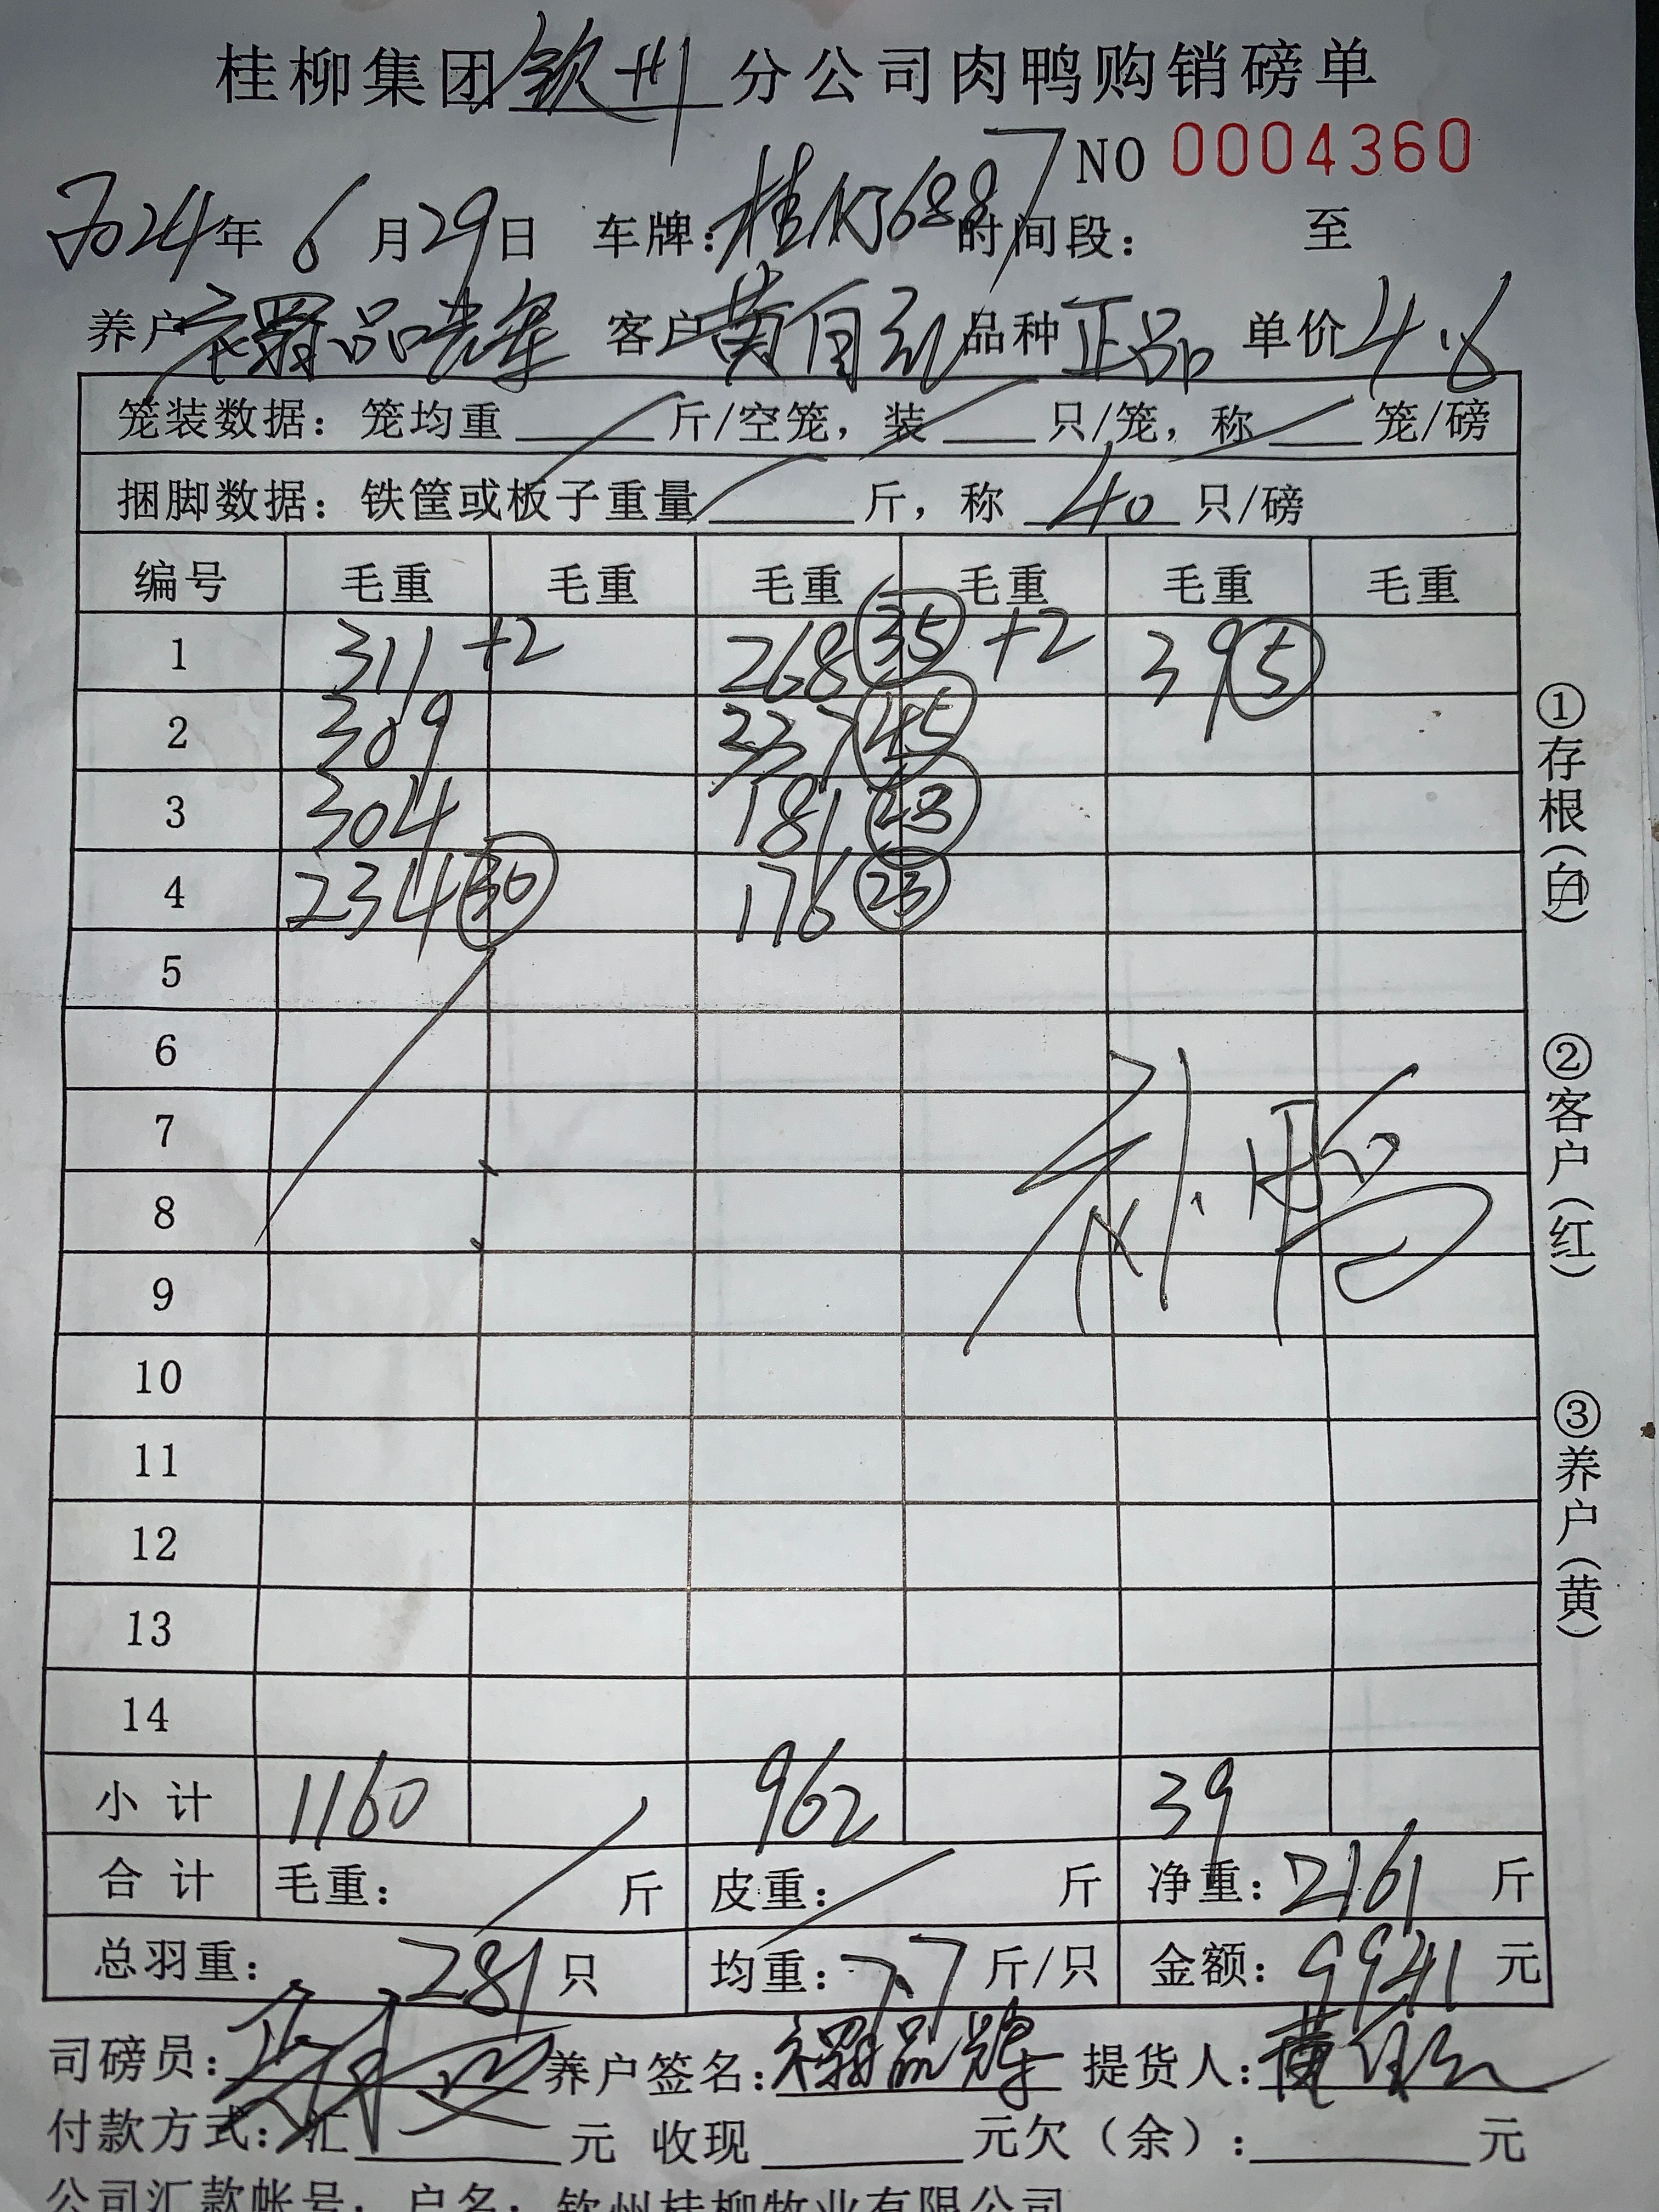 桂柳集团钦州分公司肉鸭购销磅单
NO 0004360
2024年 6月29日 车牌: 桂 6887 时间段: 至
养户 品 客户 黄自 品种 正品 单价 4.6
笼装数据: 笼均重 斤/空笼, 装 只/笼, 称 笼/磅
捆脚数据: 铁筐或板子重量 斤, 称 40 只/磅
编号 毛重 毛重 毛重 毛重 毛重 毛重
1 311 +2 268 35 +2 39 5
2 309 237 45
3 304 181 23
4 234 30 176 23
5
6
7
8
9
10
11
12
13
14
小计 1160 962 39
合计 毛重: 斤 皮重: 斤 净重: 2161 斤
总羽重: 281 只 均重: 7.7 斤/只 金额: 9941 元
司磅员: 养户签名: 品 提货人: 黄自
付款方式: 汇 元 收现 元欠(余): 元
公司汇款帐号: 户名: 钦州桂柳牧业有限公司
①存根(白)
②客户(红)
③养户(黄)